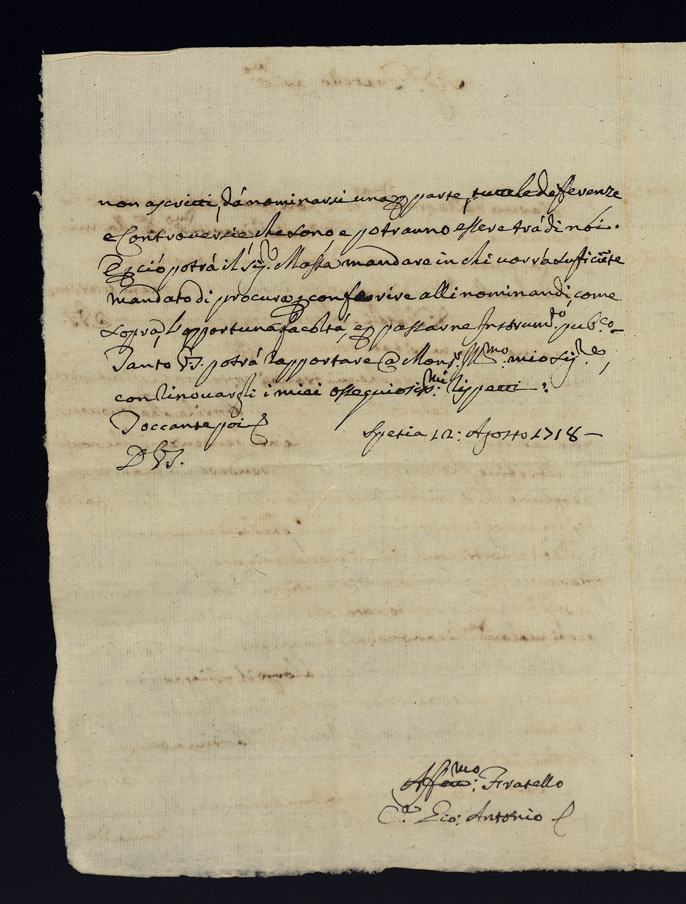 non ascritti, dá nominarsi una p parte, tutte le differenze
e Controversie che sono e potranno essere trá di noi.
E p ció potrá il Sig.r Massa mandare in chi vorrá sufficiẽte
mandato di procura p conferire alli nominandi, come
sopra, l'opportuna facoltá, e p passarne Instrum.to pub.co
Tanto V.S. potrá rapportare @ Mons.r Ill.mo mio Sig.re,
continovargli i miei ossequiosis.mi rispetti:
Toccante poi
Spetia 12: Agosto 1718 –
D V.S.
Aff.mo: Fratello
Antonio